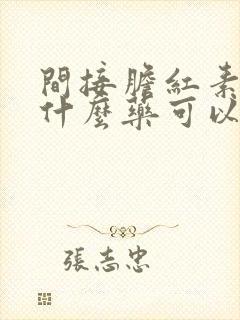 間接膽紅素
什麼藥可以
張志忠